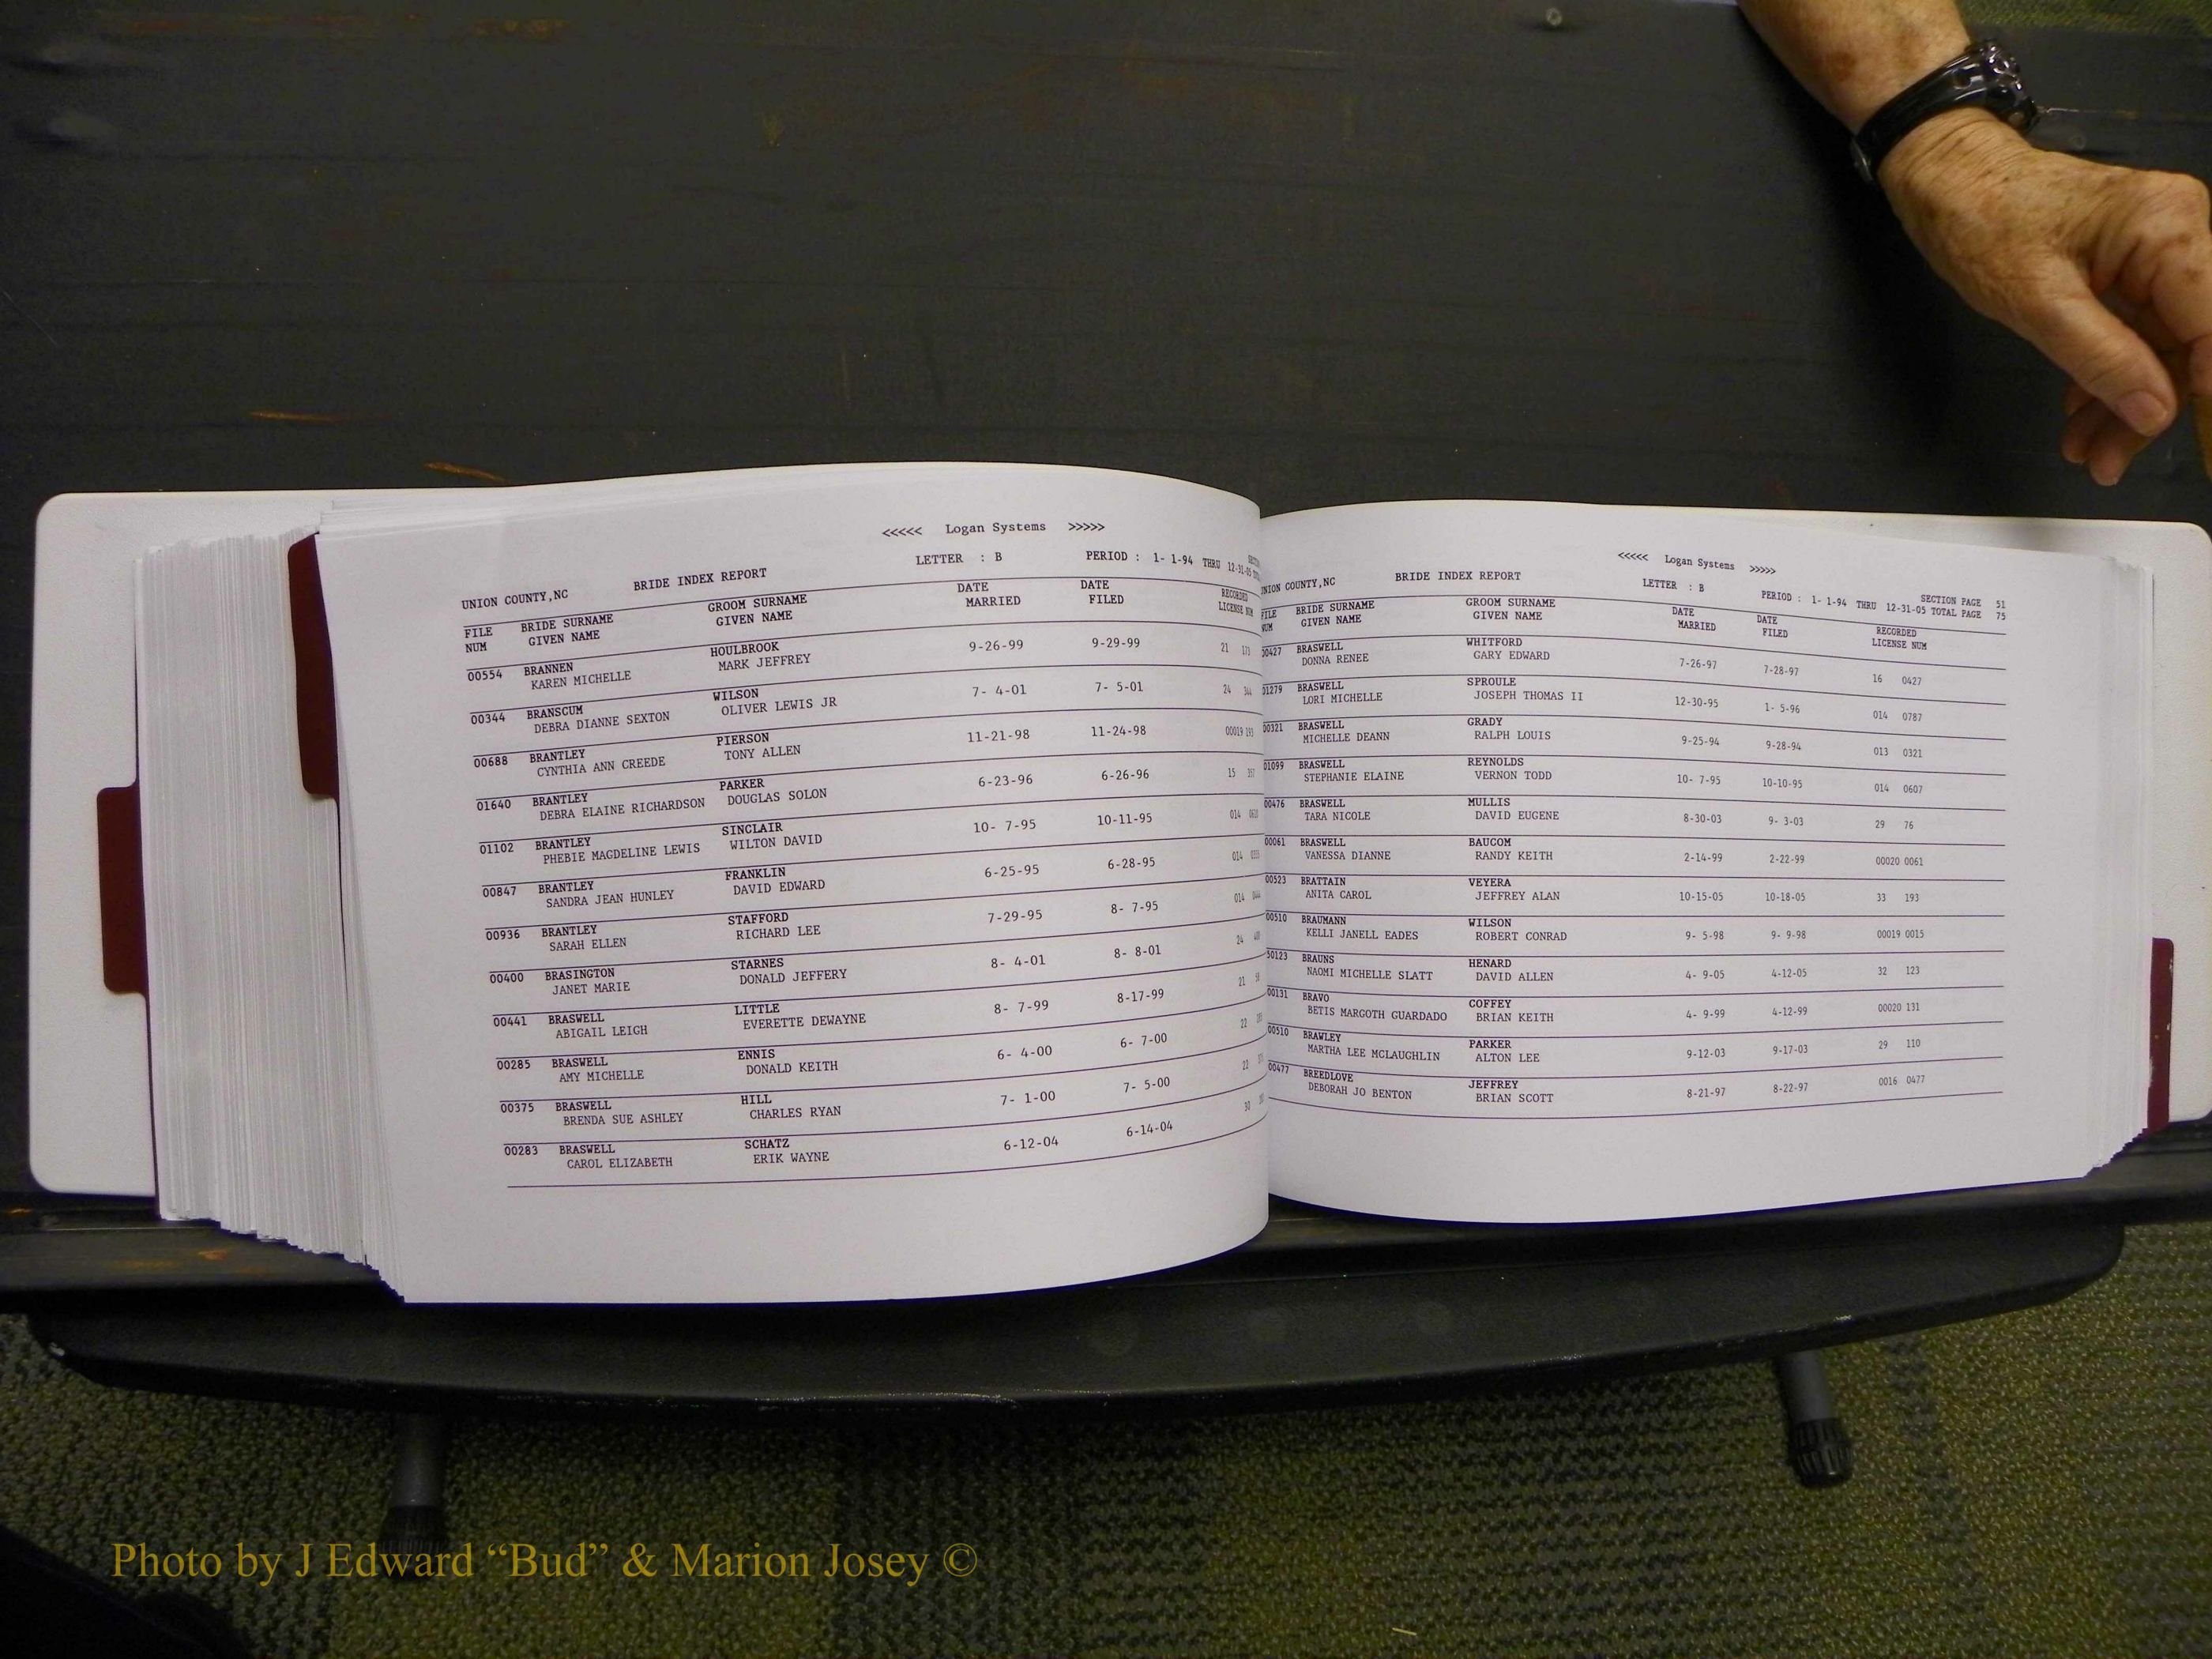 <<<<< Logan Systems >>>>>
UNION COUNTY,NC BRIDE INDEX REPORT LETTER : B PERIOD : 1- 1-94 THRU 12-31-05
FILE BRIDE SURNAME GROOM SURNAME DATE DATE RECORDED
NUM GIVEN NAME GIVEN NAME MARRIED FILED LICENSE NUM
00554 BRANNEN HOULBROOK 9-26-99 9-29-99 21 173
KAREN MICHELLE MARK JEFFREY
00344 BRANSCUM WILSON 7- 4-01 7- 5-01 24
DEBRA DIANNE SEXTON OLIVER LEWIS JR
00688 BRANTLEY PIERSON 11-21-98 11-24-98 00019 193
CYNTHIA ANN CREEDE TONY ALLEN
01640 BRANTLEY PARKER 6-23-96 6-26-96 15
DEBRA ELAINE RICHARDSON DOUGLAS SOLON
01102 BRANTLEY SINCLAIR 10- 7-95 10-11-95 014
PHEBIE MAGDELINE LEWIS WILTON DAVID
00847 BRANTLEY FRANKLIN 6-25-95 6-28-95 014
SANDRA JEAN HUNLEY DAVID EDWARD
00936 BRANTLEY STAFFORD 7-29-95 8- 7-95 014
SARAH ELLEN RICHARD LEE
00400 BRASINGTON STARNES 8- 4-01 8- 8-01 24
JANET MARIE DONALD JEFFERY
00441 BRASWELL LITTLE 8- 7-99 8-17-99 21
ABIGAIL LEIGH EVERETTE DEWAYNE
00285 BRASWELL ENNIS 6- 4-00 6- 7-00 22
AMY MICHELLE DONALD KEITH
00375 BRASWELL HILL 7- 1-00 7- 5-00 22
BRENDA SUE ASHLEY CHARLES RYAN
00283 BRASWELL SCHATZ 6-12-04 6-14-04 30
CAROL ELIZABETH ERIK WAYNE
<<<<< Logan Systems >>>>>
UNION COUNTY,NC BRIDE INDEX REPORT LETTER : B PERIOD : 1- 1-94 THRU 12-31-05 SECTION PAGE 51
TOTAL PAGE 75
FILE BRIDE SURNAME GROOM SURNAME DATE DATE RECORDED
NUM GIVEN NAME GIVEN NAME MARRIED FILED LICENSE NUM
00427 BRASWELL WHITFORD 7-26-97 7-28-97 16 0427
DONNA RENEE GARY EDWARD
01279 BRASWELL SPROULE 12-30-95 1- 5-96 014 0787
LORI MICHELLE JOSEPH THOMAS II
00321 BRASWELL GRADY 9-25-94 9-28-94 013 0321
MICHELLE DEANN RALPH LOUIS
01099 BRASWELL REYNOLDS 10- 7-95 10-10-95 014 0607
STEPHANIE ELAINE VERNON TODD
00476 BRASWELL MULLIS 8-30-03 9- 3-03 29 76
TARA NICOLE DAVID EUGENE
00061 BRASWELL BAUCOM 2-14-99 2-22-99 00020 0061
VANESSA DIANNE RANDY KEITH
00523 BRATTAIN VEYERA 10-15-05 10-18-05 33 193
ANITA CAROL JEFFREY ALAN
00510 BRAUMANN WILSON 9- 5-98 9- 9-98 00019 0015
KELLI JANELL EADES ROBERT CONRAD
50123 BRAUNS HENARD 4- 9-05 4-12-05 32 123
NAOMI MICHELLE SLATT DAVID ALLEN
00131 BRAVO COFFEY 4- 9-99 4-12-99 00020 131
BETIS MARGOTH GUARDADO BRIAN KEITH
00510 BRAWLEY PARKER 9-12-03 9-17-03 29 110
MARTHA LEE MCLAUGHLIN ALTON LEE
00477 BREEDLOVE JEFFREY 8-21-97 8-22-97 0016 0477
DEBORAH JO BENTON BRIAN SCOTT
Photo by J Edward “Bud” & Marion Josey ©